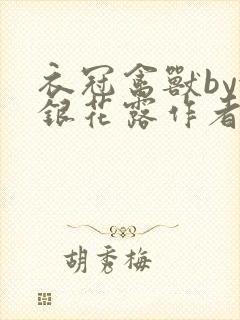 衣冠禽獸by
銀花露作者
胡秀梅